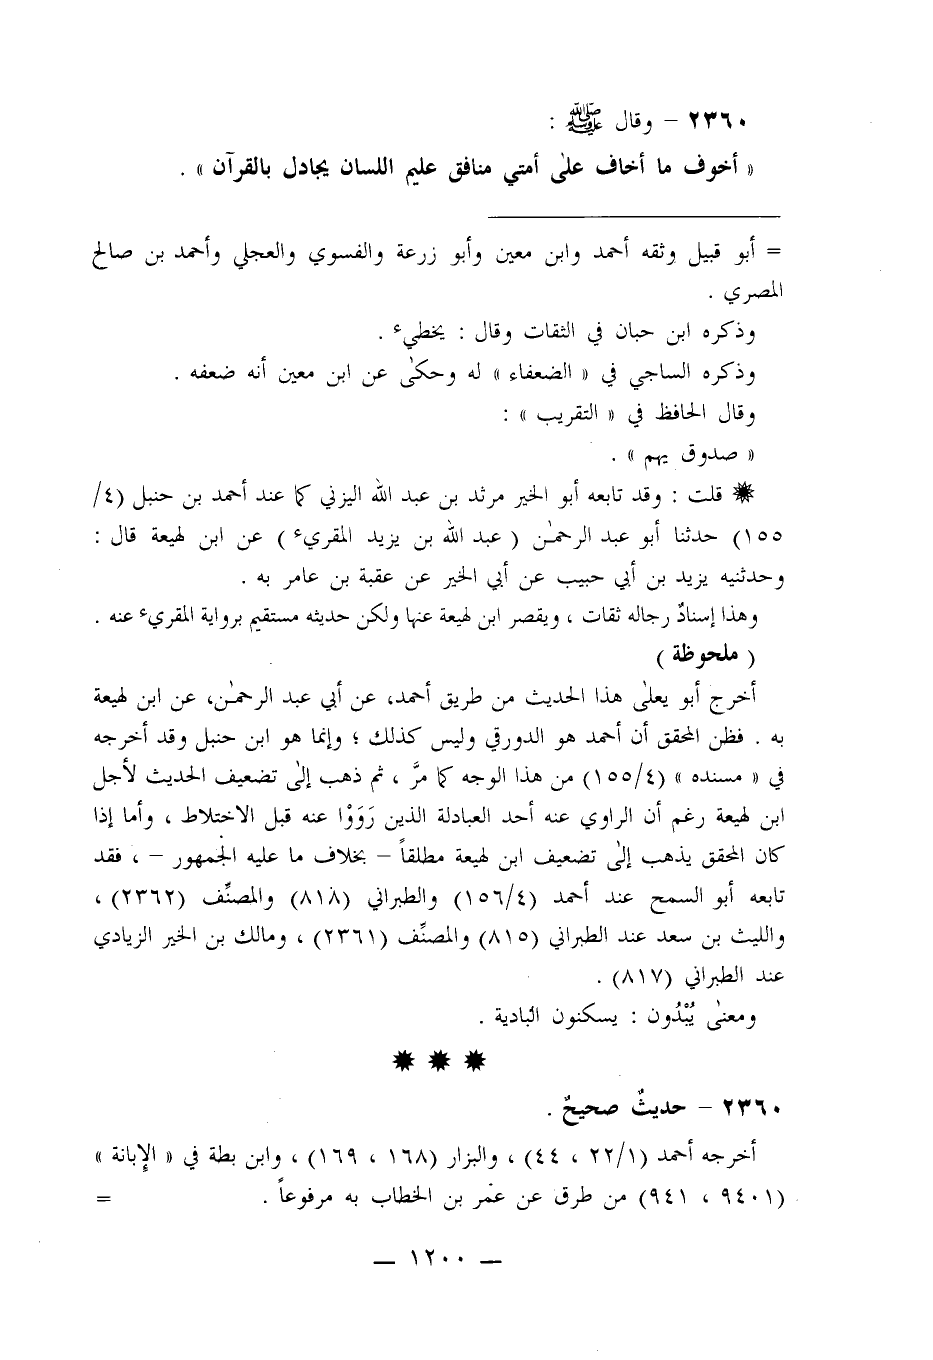 ٢٣٦٠ – وقال ﷺ :
« أخوف ما أخاف علىٰ أمتي منافق عليم اللسان يجادل بالقرآن » .
= أبو قبيل وثقه أحمد وابن معين وأبو زرعة والفسوي والعجلي وأحمد بن صالح
المصري .
وذكره ابن حبان في الثقات وقال : يخطيء .
وذكره الساجي في « الضعفاء » له وحكىٰ عن ابن معين أنه ضعفه .
وقال الحافظ في « التقريب » :
« صدوق يهم » .
✹ قلت : وقد تابعه أبو الخير مرثد بن عبد الله اليزني كما عند أحمد بن حنبل (٤/
١٥٥) حدثنا أبو عبد الرحمٰن ( عبد الله بن يزيد المقريء ) عن ابن لهيعة قال :
وحدثنيه يزيد بن أبي حبيب عن أبي الخير عن عقبة بن عامر به .
وهذا إسنادٌ رجاله ثقات ، ويقصر ابن لهيعة عنها ولكن حديثه مستقيم برواية المقريء عنه .
( ملحوظة )
أخرج أبو يعلىٰ هذا الحديث من طريق أحمد، عن أبي عبد الرحمٰن، عن ابن لهيعة
به . فظن المحقق أن أحمد هو الدورقي وليس كذلك ؛ وإنما هو ابن حنبل وقد أخرجه
في « مسنده » (١٥٥/٤) من هذا الوجه كما مرَّ ، ثم ذهب إلىٰ تضعيف الحديث لأجل
ابن لهيعة رغم أن الراوي عنه أحد العبادلة الذين رَوَوْا عنه قبل الاختلاط ، وأما إذا
كان المحقق يذهب إلىٰ تضعيف ابن لهيعة مطلقاً – بخلاف ما عليه الجمهور – ، فقد
تابعه أبو السمح عند أحمد (١٥٦/٤) والطبراني (٨١٨) والمصنِّف (٢٣٦٢) ،
والليث بن سعد عند الطبراني (٨١٥) والمصنِّف (٢٣٦١) ، ومالك بن الخير الزيادي
عند الطبراني (٨١٧) .
ومعنىٰ يُبْدُون : يسكنون البادية .
✹ ✹ ✹
٢٣٦٠ – حديثٌ صحيحٌ .
أخرجه أحمد (٢٢/١ ، ٤٤) ، والبزار (١٦٨ ، ١٦٩) ، وابن بطة في « الإبانة »
(٩٤٠١ ، ٩٤١) من طرق عن عمر بن الخطاب به مرفوعاً . =
— ١٢٠٠ —